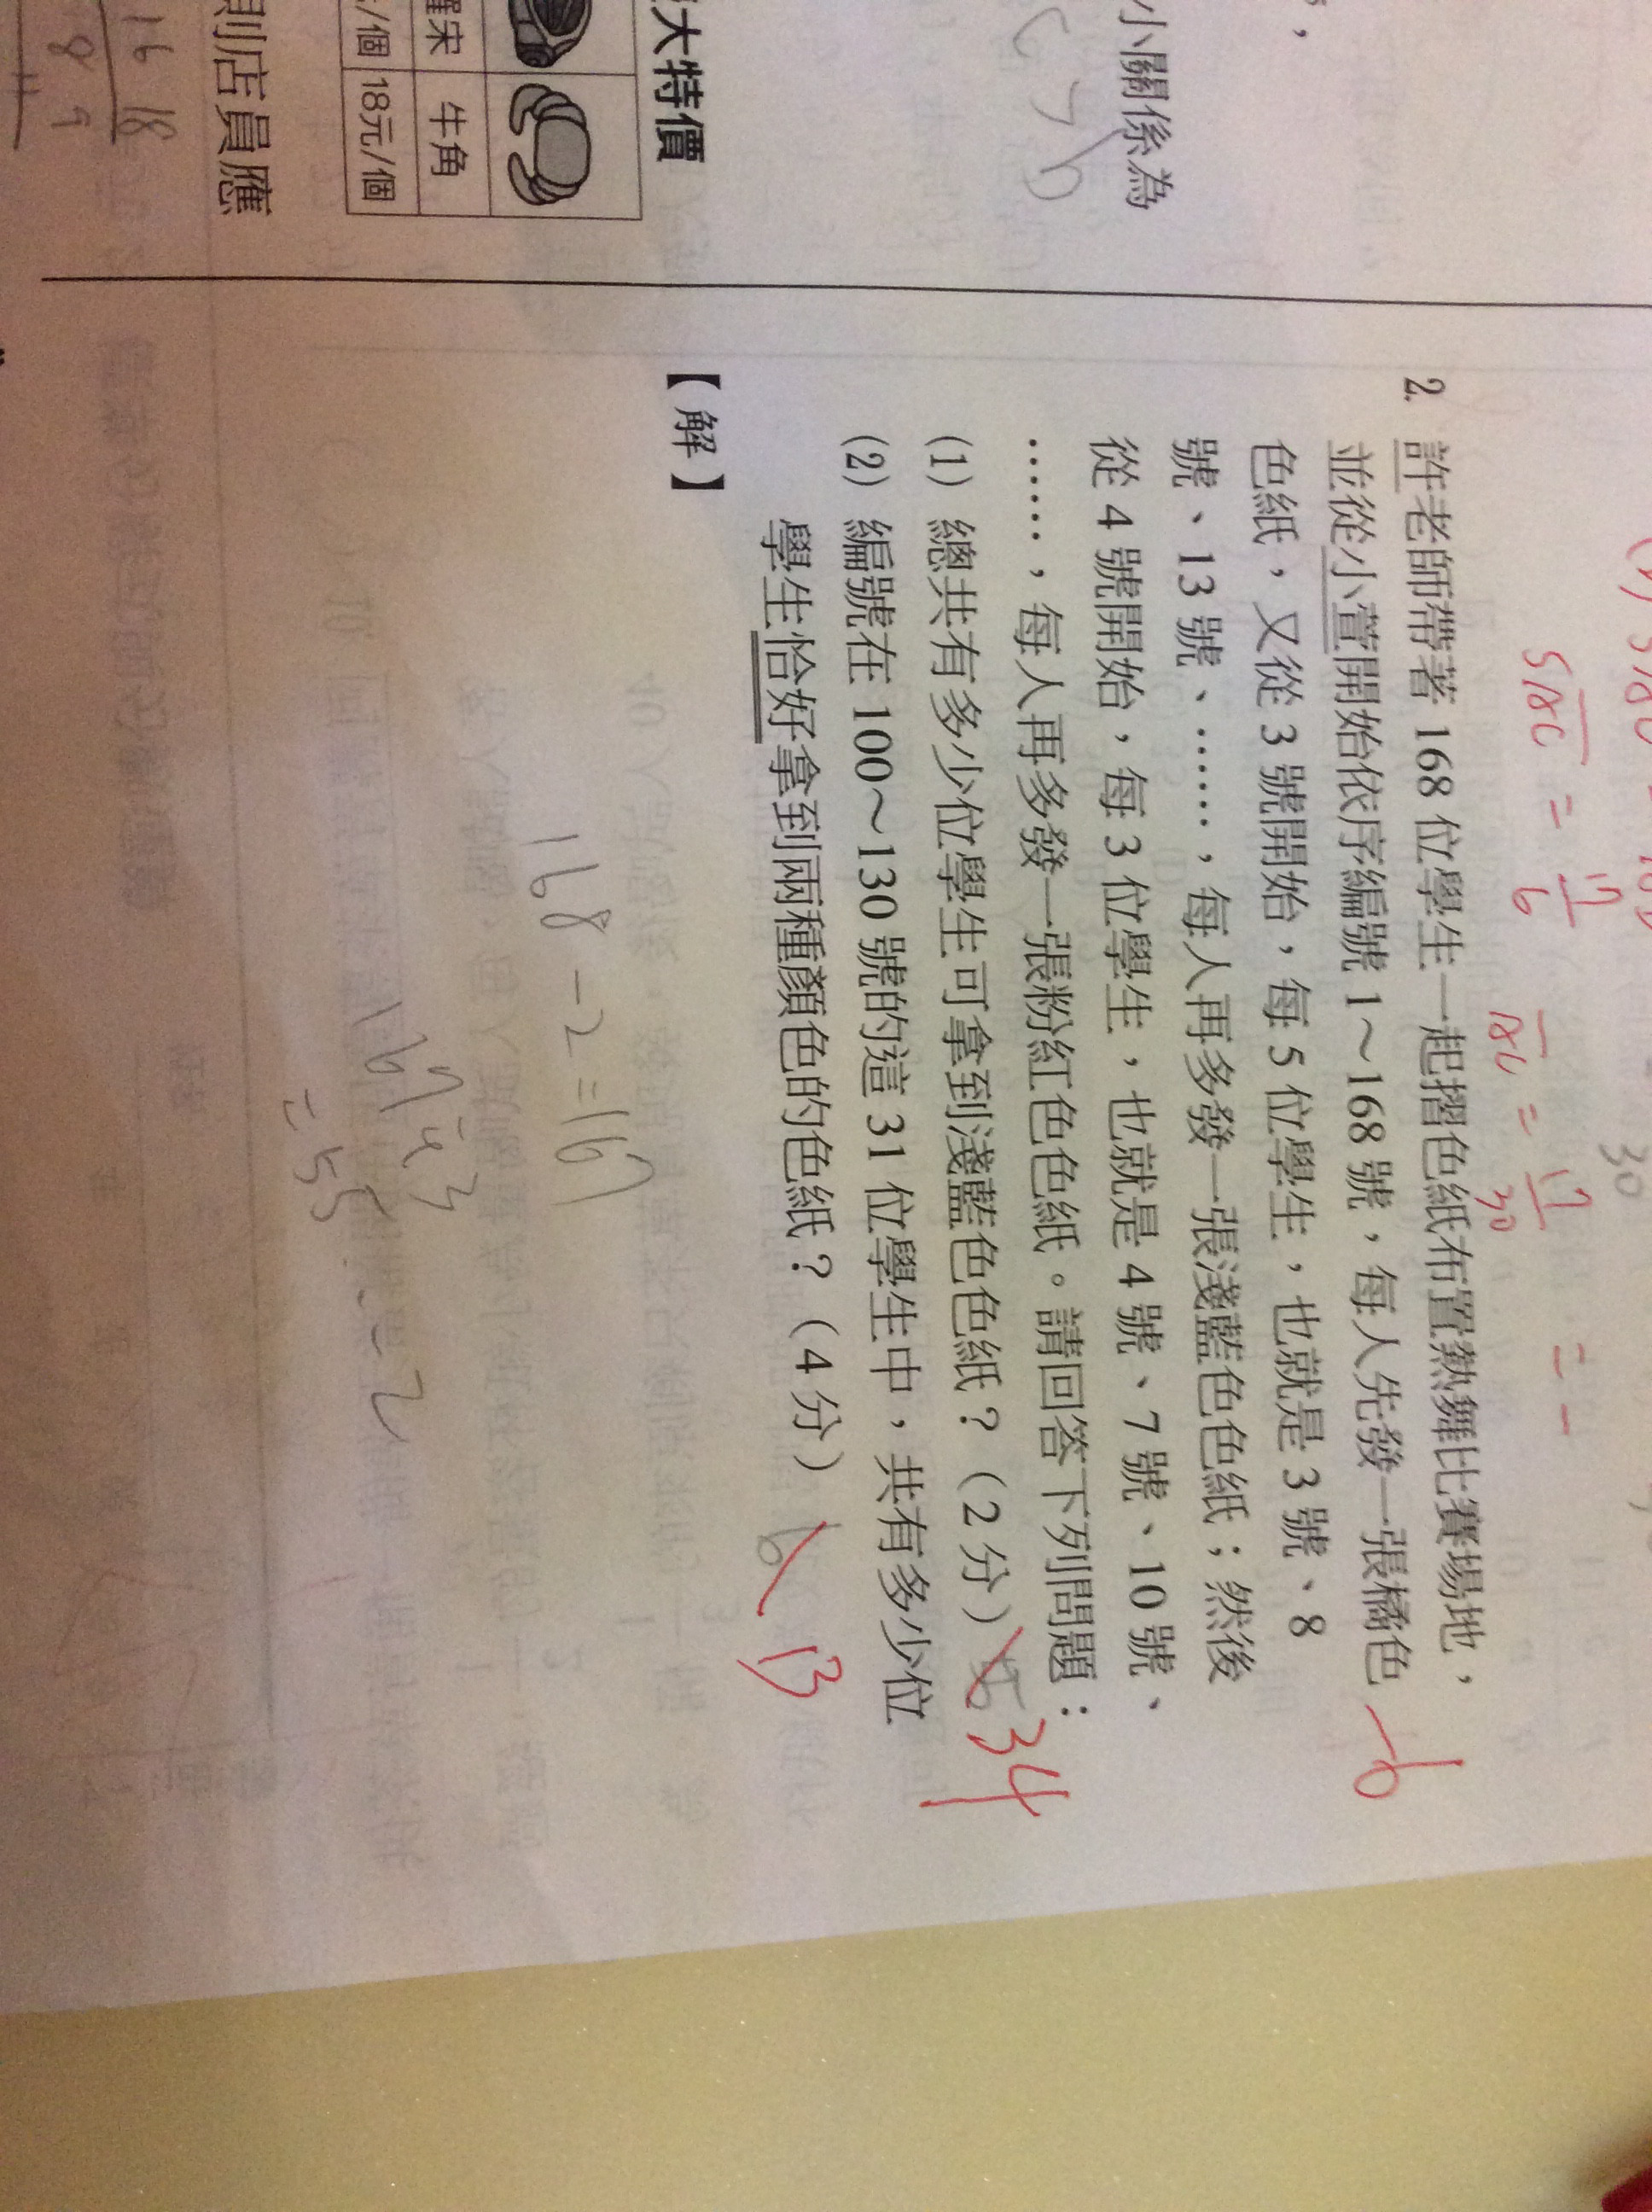 小關係為
大特價
羅宋
牛角
/個
18元/個
則店員應
16 18
8 9
2. 許老師帶著 168 位學生一起摺色紙布置熱舞比賽場地，
並從小萱開始依序編號 1～168 號，每人先發一張橘色
色紙，又從 3 號開始，每 5 位學生，也就是 3 號、8
號、13 號、……，每人再多發一張淺藍色色紙；然後
從 4 號開始，每 3 位學生，也就是 4 號、7 號、10 號、
……，每人再多發一張粉紅色色紙。請回答下列問題：
(1) 總共有多少位學生可拿到淺藍色色紙？（2 分）
34
(2) 編號在 100～130 號的這 31 位學生中，共有多少位
學生恰好拿到兩種顏色的色紙？（4 分）
6
13
-6
【解】
168 - 2 = 167
167 ÷ 3
= 55
2
30